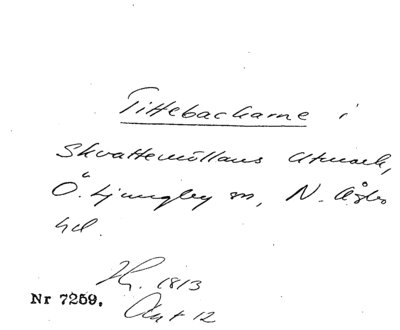 Tittebackarne i
Skvattemöllans Utmark,
Ö. Ljungby sn, N. Åsbo
hd.
1813
Akt 12
Nr 7259.